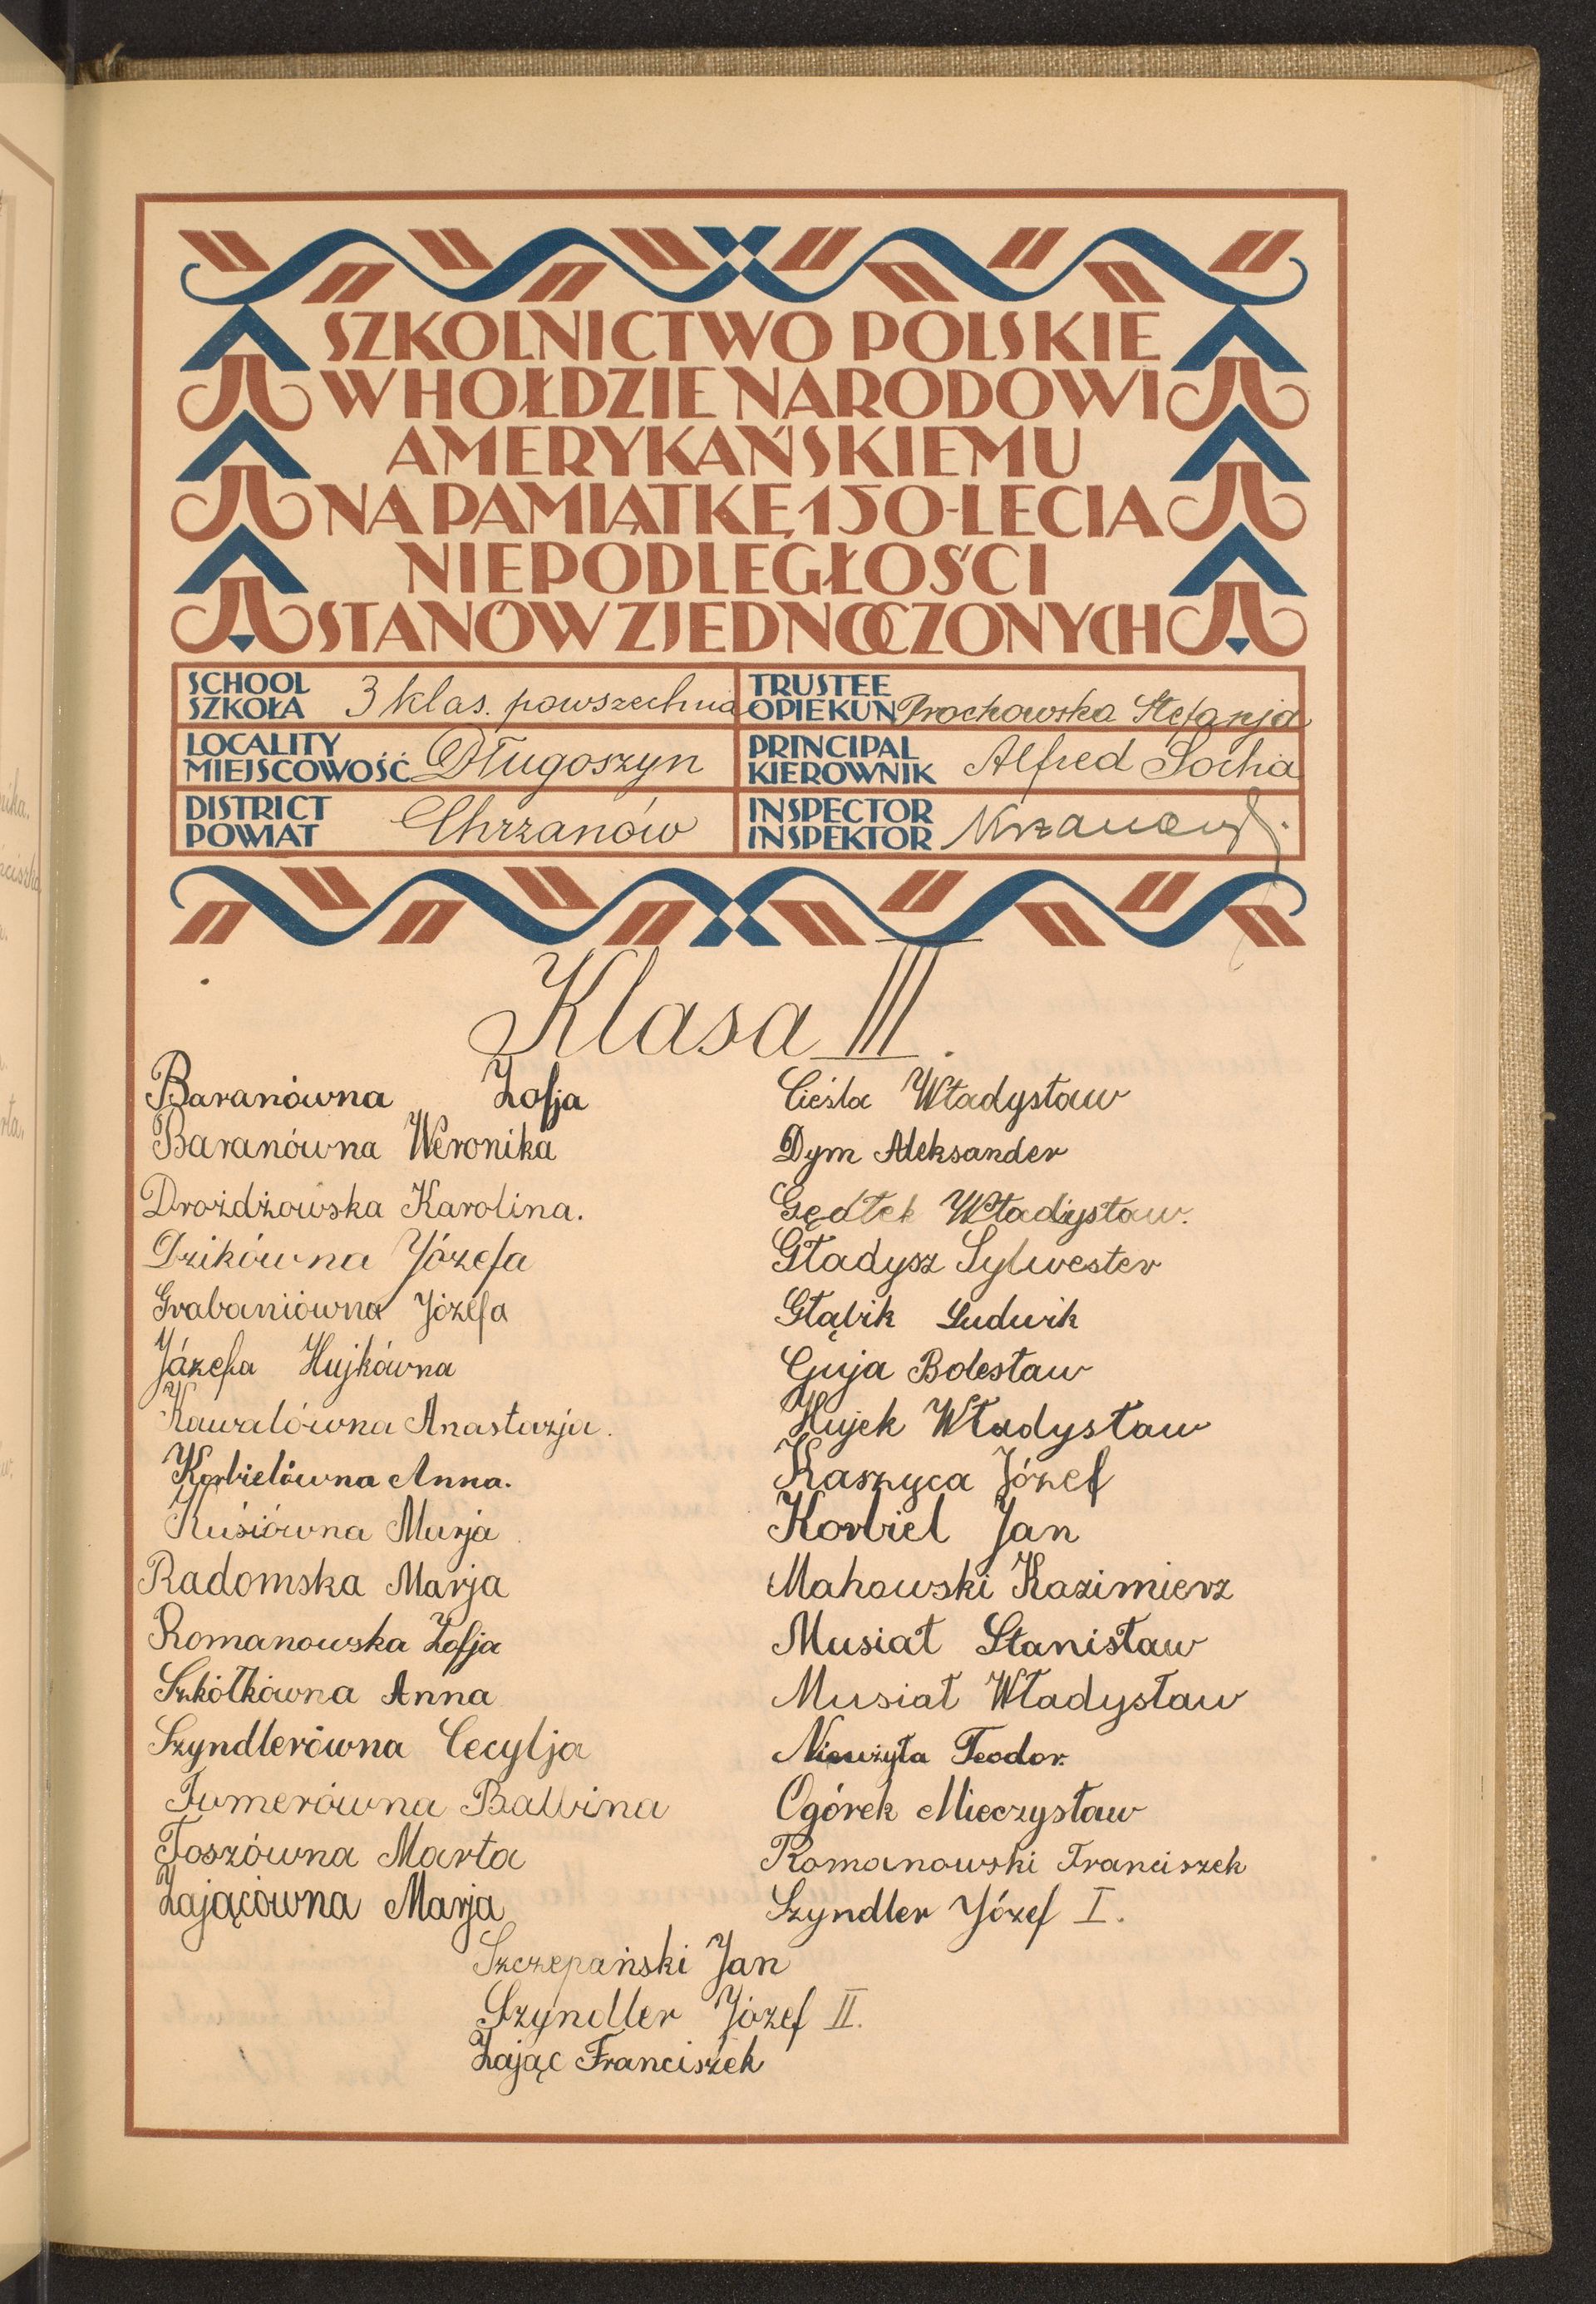 SZKOLNICTWO POLSKIE
W HOŁDZIE NARODOWI
AMERYKAŃSKIEMU
NA PAMIĄTKĘ 150-LECIA
NIEPODLEGŁOŚCI
STANÓW ZJEDNOCZONYCH
SCHOOL
SZKOŁA 3 klas. powszechna
TRUSTEE
OPIEKUN Prochowska Stefanja
LOCALITY
MIEJSCOWOŚĆ Długoszyn
PRINCIPAL
KIEROWNIK Alfred Socha
DISTRICT
POWIAT Chrzanów
INSPECTOR
INSPEKTOR
Klasa III.
Baranówna Zofja
Baranówna Weronika
Drożdżowska Karolina.
Dzikówna Józefa
Grabaniówna Józefa
Józefa Hujkówna
Kawalówna Anastazja.
Korbielówna Anna.
Kusiówna Marja
Radomska Marja
Romanowska Zofja
Szkółkówna Anna
Szyndlerówna Cecylja
Tumerówna Balbina
Toszówna Marta
Zającówna Marja
Cieśla Władysław
Dym Aleksander
Gędłek Władysław.
Gładysz Sylwester
Głąbik Ludwik
Guja Bolesław
Hujek Władysław
Kaszyca Józef
Korbiel Jan
Mahowski Kazimierz
Musiał Stanisław
Musiał Władysław
Niewżyła Teodor.
Ogórek Mieczysław
Romanowski Franciszek
Szyndler Józef I.
Szczepański Jan
Szyndler Józef II.
Zając Franciszek